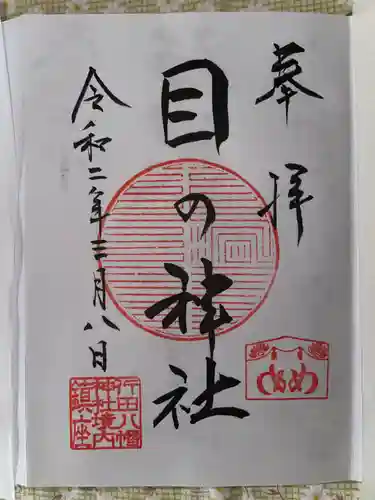 奉拝
目の神社
令和二年三月八日
め
竹田八幡
神社境内
鎮座